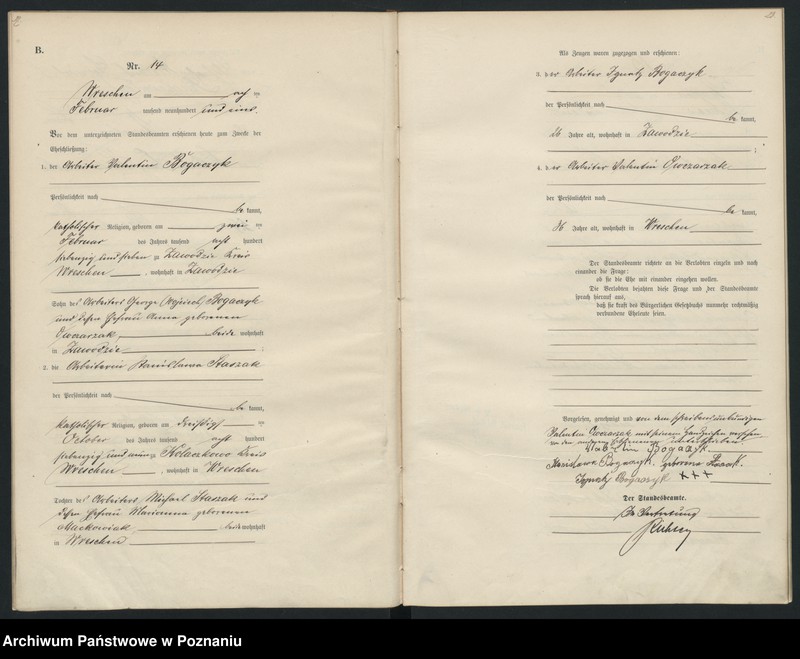 B.
Nr. 14
Wreschen am acht ten
Februar tausend neunhundert und eins.
Vor dem unterzeichneten Standesbeamten erschienen heute zum Zwecke der
Eheschließung:
1. der Arbeiter Valentin Bogaczyk
der Persönlichkeit nach
be kannt,
katholischer Religion, geboren am zwei ten
Februar des Jahres tausend acht hundert
siebenzig und sieben zu Zawodzie Kreis
Wreschen, wohnhaft in Zawodzie
Sohn des Arbeiters George (Wojciech) Bogaczyk
und dessen Ehefrau Anna geborenen
Owczarzak, beide wohnhaft
in Zawodzie ;
2. die Arbeiterin Stanislawa Staszak
der Persönlichkeit nach
be kannt,
katholischer Religion, geboren am dreißigsten
October des Jahres tausend acht hundert
siebenzig und neun zu Kolaczkowo Kreis
Wreschen, wohnhaft in Wreschen
Tochter des Arbeiters Michael Staszak und
dessen Ehefrau Marianna geborenen
Mackowiak beide wohnhaft
in Wreschen
Als Zeugen waren zugezogen und erschienen:
3. der Arbeiter Ignatz Bogaczyk
der Persönlichkeit nach
be kannt,
26 Jahre alt, wohnhaft in Zawodzie ;
4. der Arbeiter Valentin Owczarzak
der Persönlichkeit nach
be kannt,
36 Jahre alt, wohnhaft in Wreschen
Der Standesbeamte richtete an die Verlobten einzeln und nach
einander die Frage:
ob sie die Ehe mit einander eingehen wollen.
Die Verlobten bejahten diese Frage und der Standesbeamte
sprach hierauf aus,
daß sie kraft des Bürgerlichen Gesetzbuchs nunmehr rechtmäßig
verbundene Eheleute seien.
Vorgelesen, genehmigt und von dem schreibensunkundigen
Valentin Owczarzak mit seinem Handzeichen versehen
von den unterschrieben
Bogaczyk
Bogaczyk, geborene Staszak.
Ignatz Bogaczyk +++
Der Standesbeamte.
In Vertretung
Archiwum Państwowe w Poznaniu